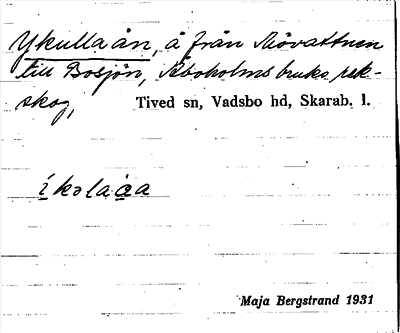 Ykullaån, å från Skovattnen
till Bosjön, Åboholms bruks rek-
skog, Tived sn, Vadsbo hd, Skarab. l.
Maja Bergstrand 1931